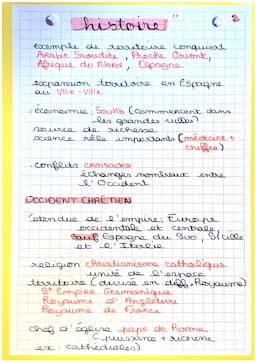 histoire
exemple de territoire conquient
Arabie Saoudite, Proche Orient,
Afrique du Nord, Espagne
expansion territoire en Espagne
au VIIe-VIIIe
économie: Souks (commencent dans
les grandes villes)
source de richesse
science rôle importants (médecine +
chiffre)
conflits croisades
échanges nombreux entre
l'Occident
OCCIDENT CHRÉTIEN
étendue de l'empire: Europe
occidentale et centrale
sauf Espagne du Sud, Sicile
et l'Italie
religion christianisme catholique
unité de l'espace
territoire (divisé en diff. Royaume)
St Empire Germanique
Royaume d'Angleterre
Royaume de France
chef d'église pape de Rome
(puissance + richesse
ex: cathédrales)